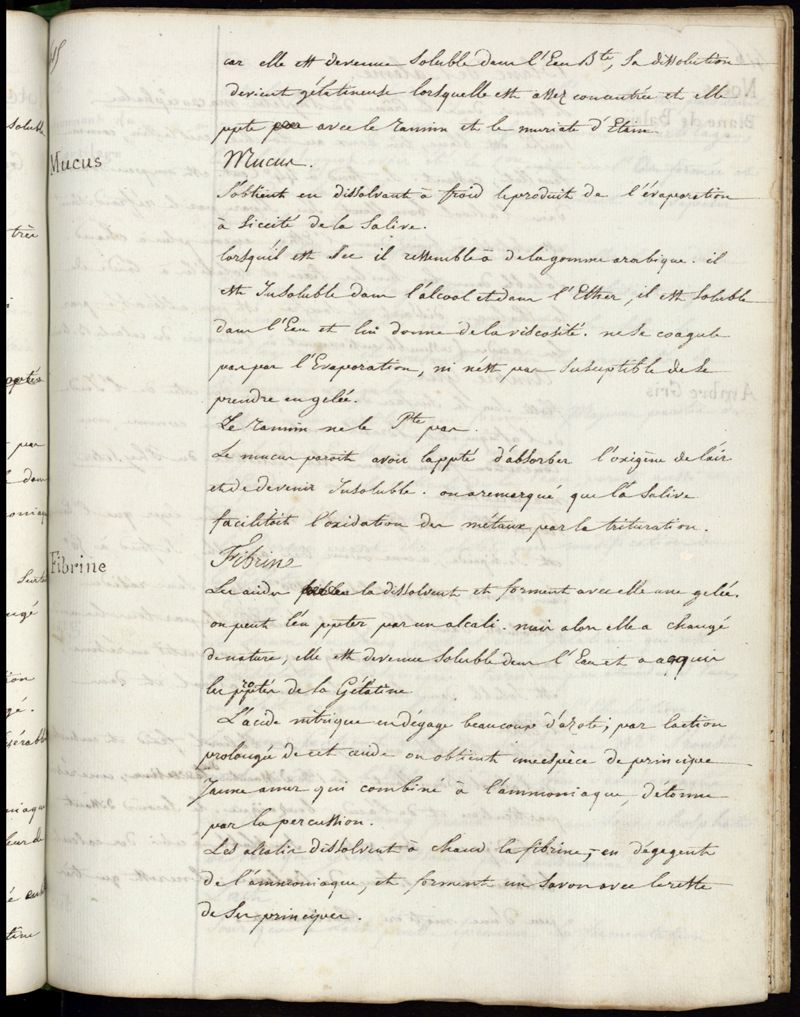 car elle est devenue Soluble dans l'Eau Bte, Sa dissolution
devient gélatineuse lorsquelle est assez concentrée et elle
ppte avec le tannin et le muriate d'Etain
Mucus
Mucus.
S'obtient en dissolvant à froid le produit de l'évaporation
à Siccité de la Salive.
lorsqu'il est Sec il ressemble à de la gomme arabique. il
est Insoluble dans l'alcool et dans l'Ether, il est Soluble
dans l'Eau et lui donne de la viscosité. ne se coagule
pas par l'Evaporation, ni n'est pas Susceptible de Se
prendre en gelée.
Le tannin ne le Pte pas.
Le mucus paroît avoir la ppté d'absorber l'oxigène de l'air
et de devenir Insoluble. on a remarqué que la Salive
facilitoit l'oxidation des métaux par la trituration.
Fibrine
Fibrine
Les acides la dissolvent et forment avec elle une gelée.
on peut l'en ppter par un alcali. mais alors elle a changé
de nature, elle est devenue Soluble dans l'Eau et a acquis
les pptés de la Gélatine
L'acide nitrique en dégage beaucoup d'azote; par l'action
prolongée de cet acide on obtient une espèce de principe
Jaune amer qui combiné à l'ammoniaque, détonne
par la percussion.
Les alcalis dissolvent à chaud la fibrine, en dégagent
de l'ammoniaque, et forment un Savon avec le reste
de Ses principes.